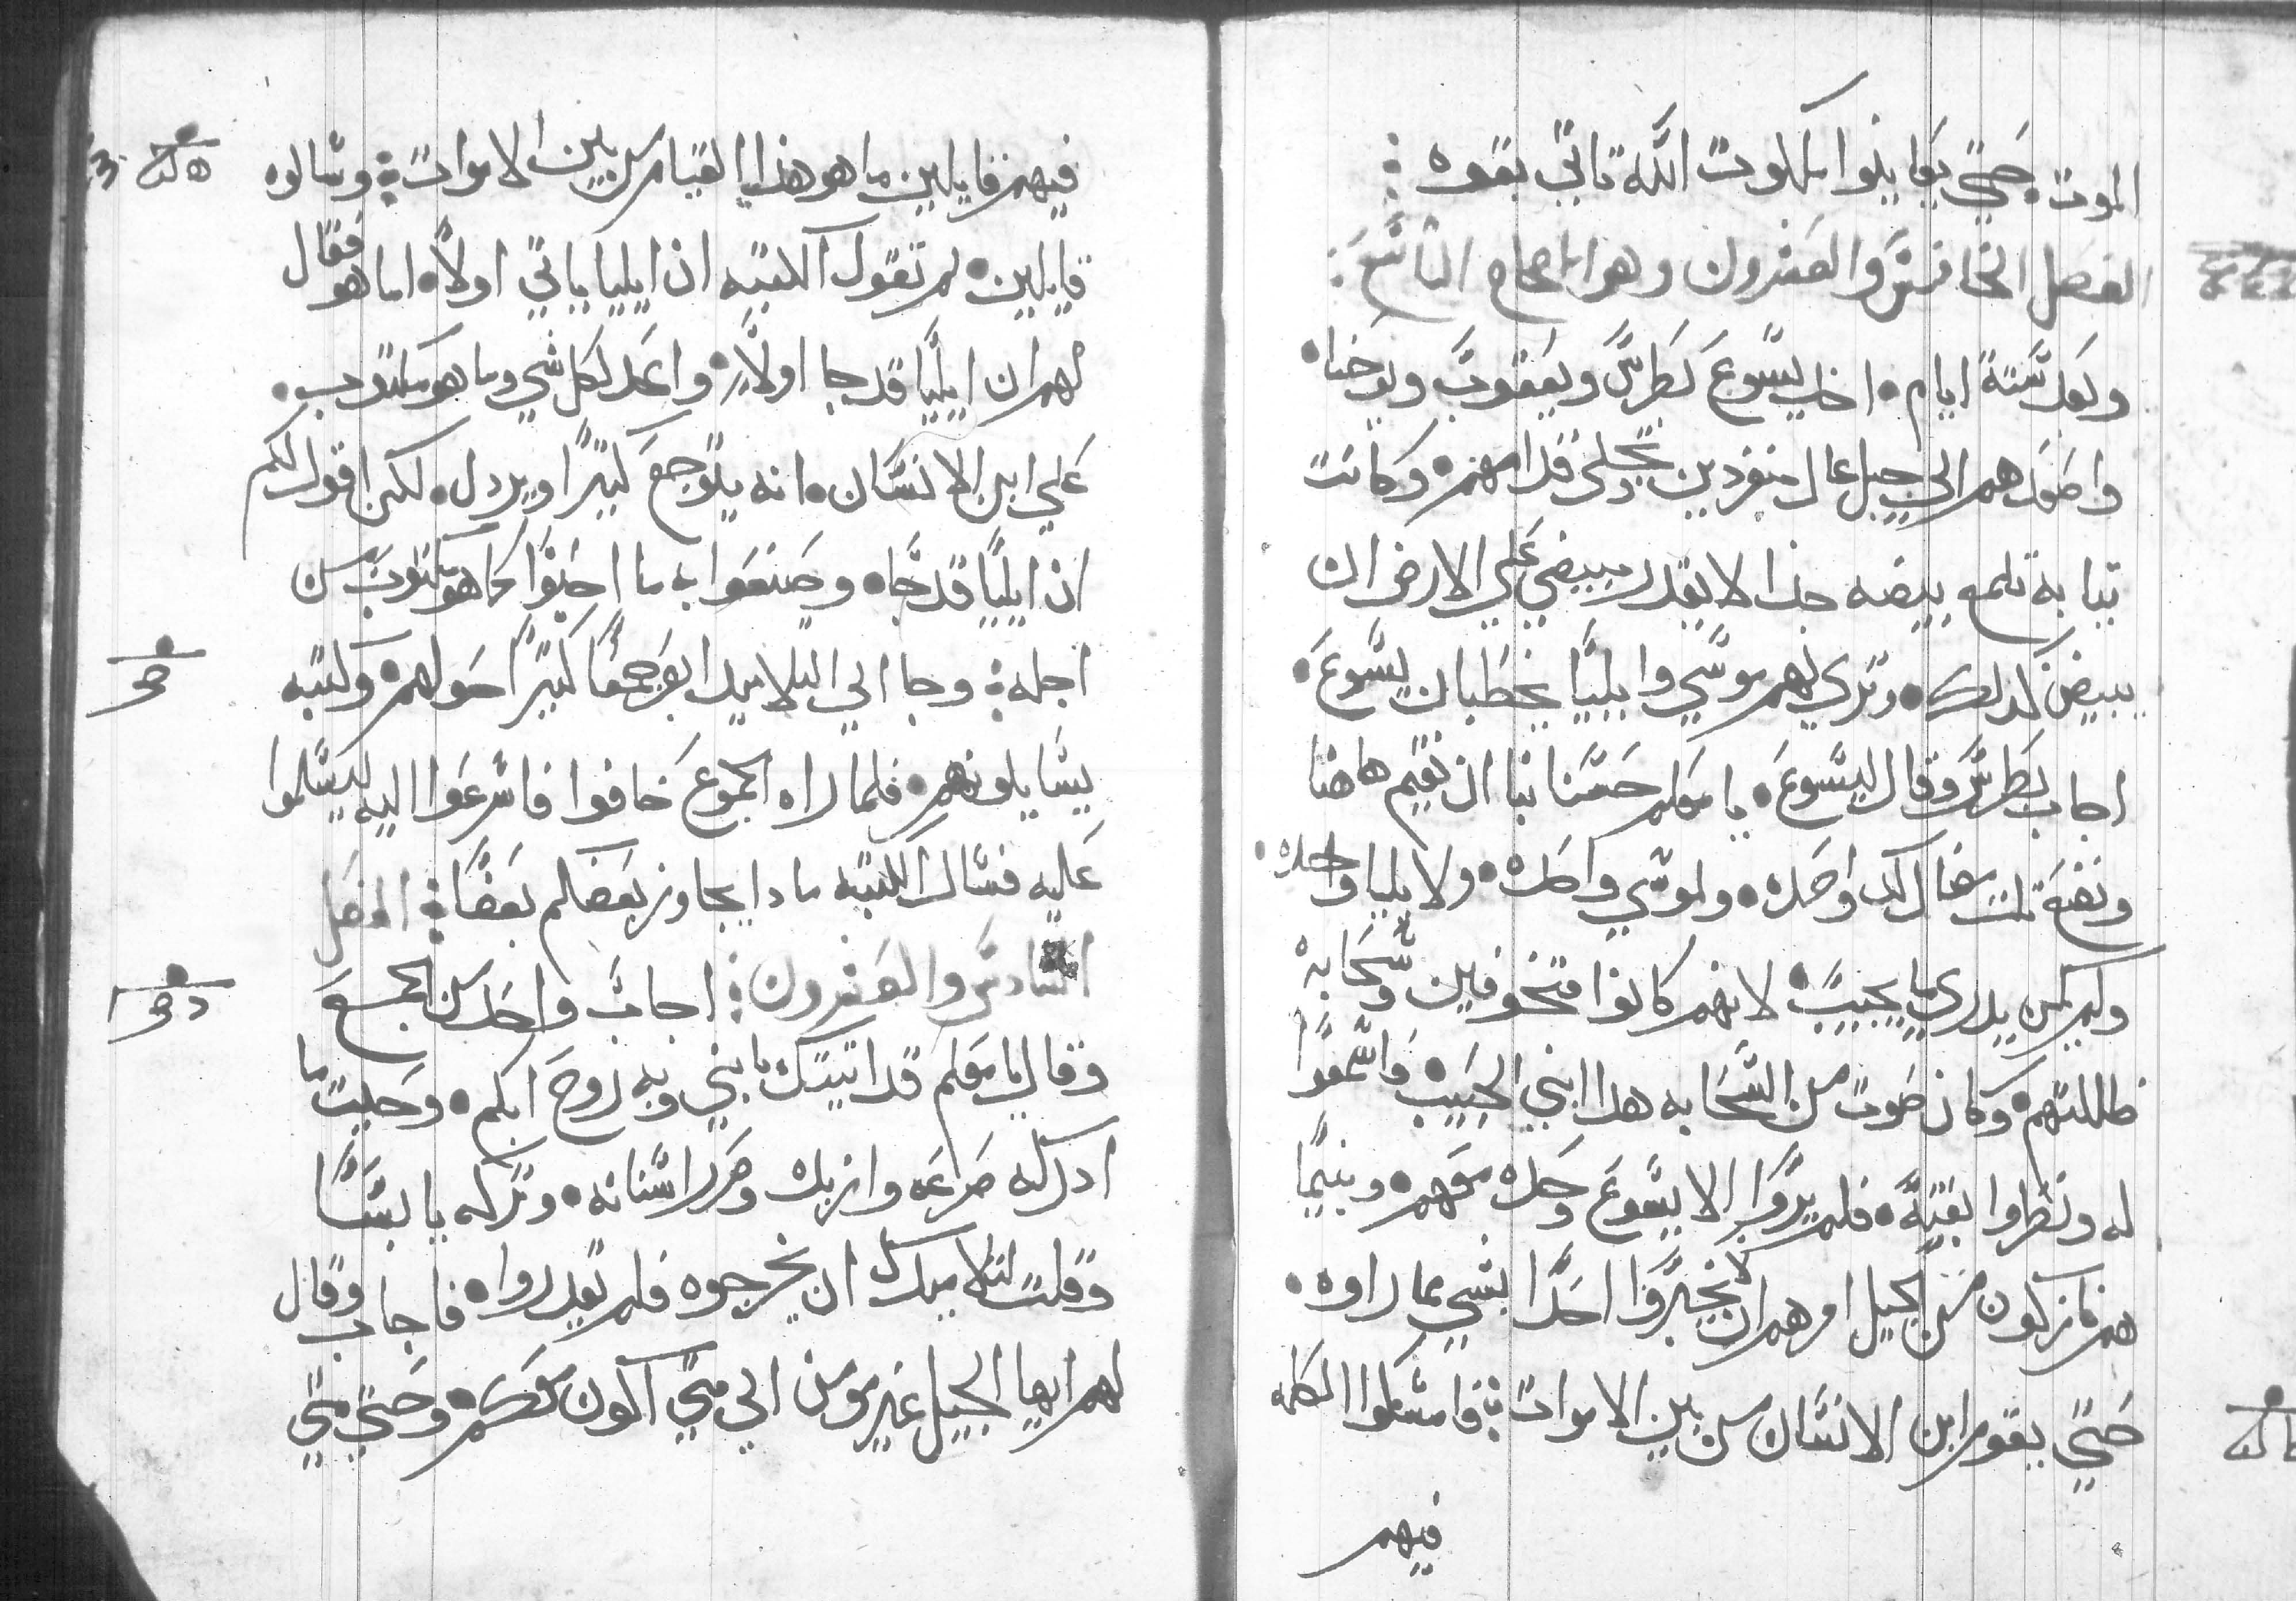 الموت، حتي يعاينوا ملكوت الله تاتي بقوه :
الفصل الخامس والعشرون وهو الاصحاح التاسع :
وبعد ستة ايام • اخد يسوع بطرس ويعقوب ويوحنا •
واصعدهم الي جبل عال منفردين تجلى قدامهم • وكانت
تيابه تلمع بيضه جدا لا يقدر مبيض علي الارض ان
يبيض كدلك • وتري لهم موسي وايليا يخطبان يسوع •
اجاب بطرس وقال ليسوع • يا معلم حسنا لنا ان نقيم هاهنا
ونصنع تلت مضال لك واحده • ولموسي واحده • ولايليا واحده •
ولم يكن يدري ما يجيب • لانهم كانوا متخوفين وسحابه
ظللتهم • وكان صوت من السحابه هدا ابني الحبيب فاسمعوا
له ونظروا بغتة • فلم يروا الا يسوع وحده معهم • وبينما
هم نازلون من الجبل امرهم ان لا يخبروا احدا بشي مما راوه •
حتي يقوم ابن الانسان من بين الاموات : فامسكوا الكلمه
فيهم
فيهم قايلين ما هو هدا القيام من بين الاموات : وسالوه
قايلين • لم تقول الكتبه ان ايليا ياتي اولا • اما هو فقال
لهم ان ايليا قد جا اولا • واعد لكل شي وما هو مكتوب •
علي ابن الانسان • انه يتوجع كتيرا ويردل • لكن اقول لكم
ان ايليا قد جا • وصنعوا به ما احبوا كما هو مكتوب من
اجله : وجا الي التلاميد ابصر جمعا كتيرا حولهم • وكتبه
يسايلونهم • فلما راه الجموع خافوا فاسرعوا اليه ليسلموا
عليه فسال الكتبه مادا يجاوز بعضكم بعضا : الفصل
السادس والعشرون : اجاب واحد من الجمع
وقال يا معلم قد اتيتك بابني وبه روح ابكم • وحيت ما
ادركه صرعه وازبد وضرر اسنانه • وتركه يابسا
وقلت لتلاميدك ان يخرجوه فلم يقدروا • فاجاب وقال
لهم ايها الجيل غير مومن الي متي اكون معكم • وحتي متي